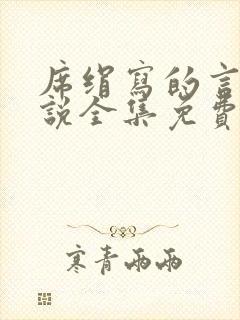 席绢寫的言
說全集免費
寒青雨雨